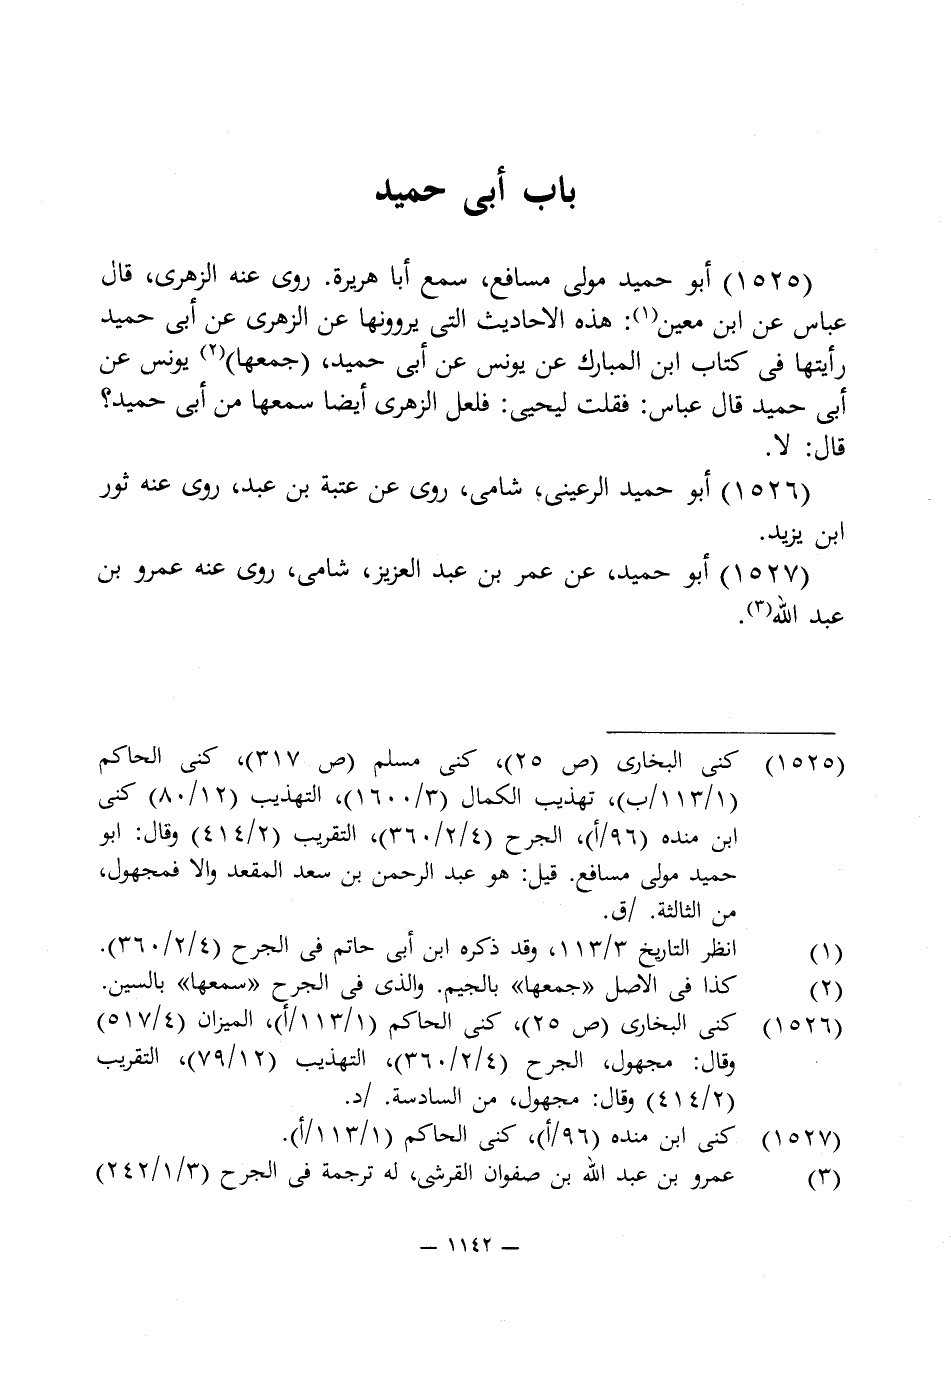 باب أبى حميد
(١٥٢٥) أبو حميد مولى مسافع، سمع أبا هريرة. روى عنه الزهرى، قال
عباس عن ابن معين(١): هذه الاحاديث التى يروونها عن الزهرى عن أبى حميد
رأيتها فى كتاب ابن المبارك عن يونس عن أبى حميد، (جمعها)(٢) يونس عن
أبى حميد قال عباس: فقلت ليحيى: فلعل الزهرى أيضا سمعها من أبى حميد؟
قال: لا.
(١٥٢٦) أبو حميد الرعينى، شامى، روى عن عتبة بن عبد، روى عنه ثور
ابن يزيد.
(١٥٢٧) أبو حميد، عن عمر بن عبد العزيز، شامى، روى عنه عمرو بن
عبد الله(٣).
(١٥٢٥) كنى البخارى (ص ٢٥)، كنى مسلم (ص ٣١٧)، كنى الحاكم
(١/١١٣/ب)، تهذيب الكمال (٣/١٦٠٠)، التهذيب (١٢/٨٠) كنى
ابن منده (٩٦/أ)، الجرح (٤/٢/٣٦٠)، التقريب (٢/٤١٤) وقال: ابو
حميد مولى مسافع. قيل: هو عبد الرحمن بن سعد المقعد والا فمجهول،
من الثالثة. /ق.
(١) انظر التاريخ ٣/١١٣، وقد ذكره ابن أبى حاتم فى الجرح (٤/٢/٣٦٠).
(٢) كذا فى الاصل «جمعها» بالجيم. والذى فى الجرح «سمعها» بالسين.
(١٥٢٦) كنى البخارى (ص ٢٥)، كنى الحاكم (١/١١٣/أ)، الميزان (٤/٥١٧)
وقال: مجهول، الجرح (٤/٢/٣٦٠)، التهذيب (١٢/٧٩)، التقريب
(٢/٤١٤) وقال: مجهول، من السادسة. /د.
(١٥٢٧) كنى ابن منده (٩٦/أ)، كنى الحاكم (١/١١٣/أ).
(٣) عمرو بن عبد الله بن صفوان القرشى، له ترجمة فى الجرح (٣/١/٢٤٢)
— ١١٤٢ —